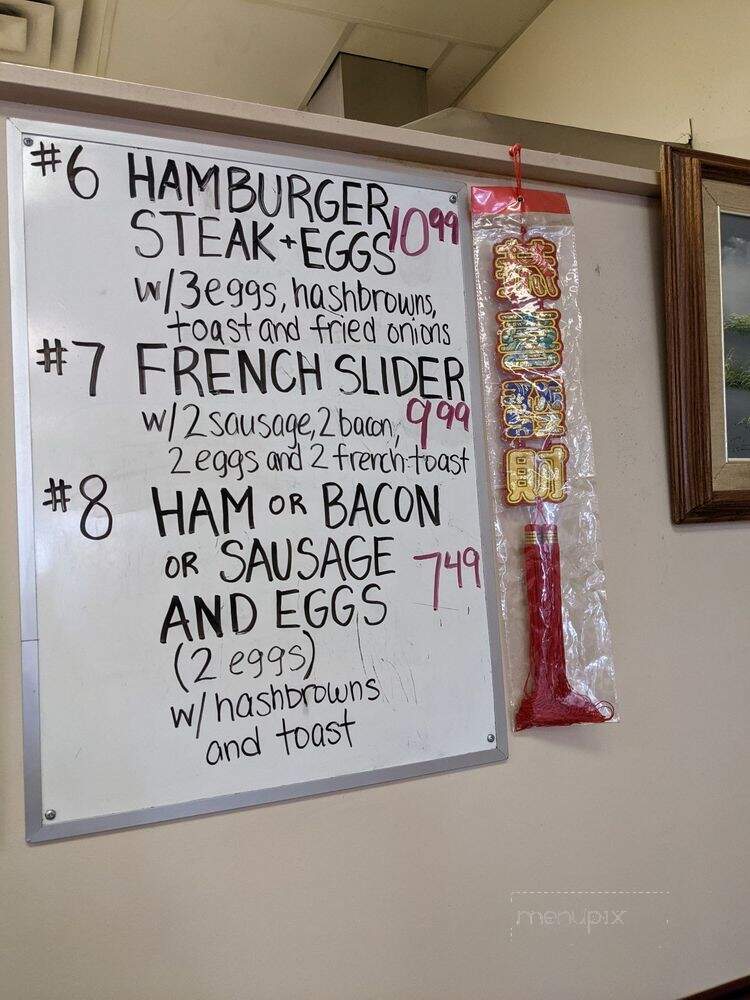 #6 HAMBURGER
STEAK + EGGS 10 99
w/3 eggs, hashbrowns,
toast and fried onions
#7 FRENCH SLIDER
w/2 sausage, 2 bacon, 9 99
2 eggs and 2 french toast
#8 HAM OR BACON
OR SAUSAGE 7 49
AND EGGS
(2 eggs)
w/ hashbrowns
and toast
財
menupix